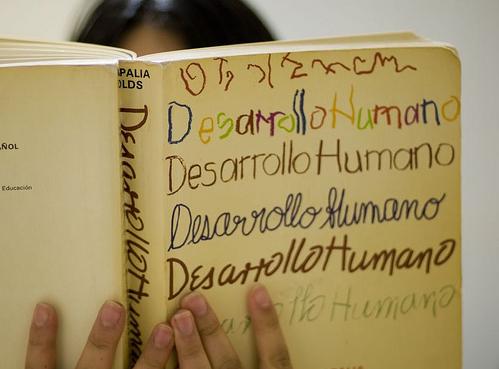 AÑOL
Educación
APALIA
OLDS
Desarrollo Humano
Desarrollo Humano
Desarrollo Humano
Desarrollo Humano
Desarrollo Humano
Humano